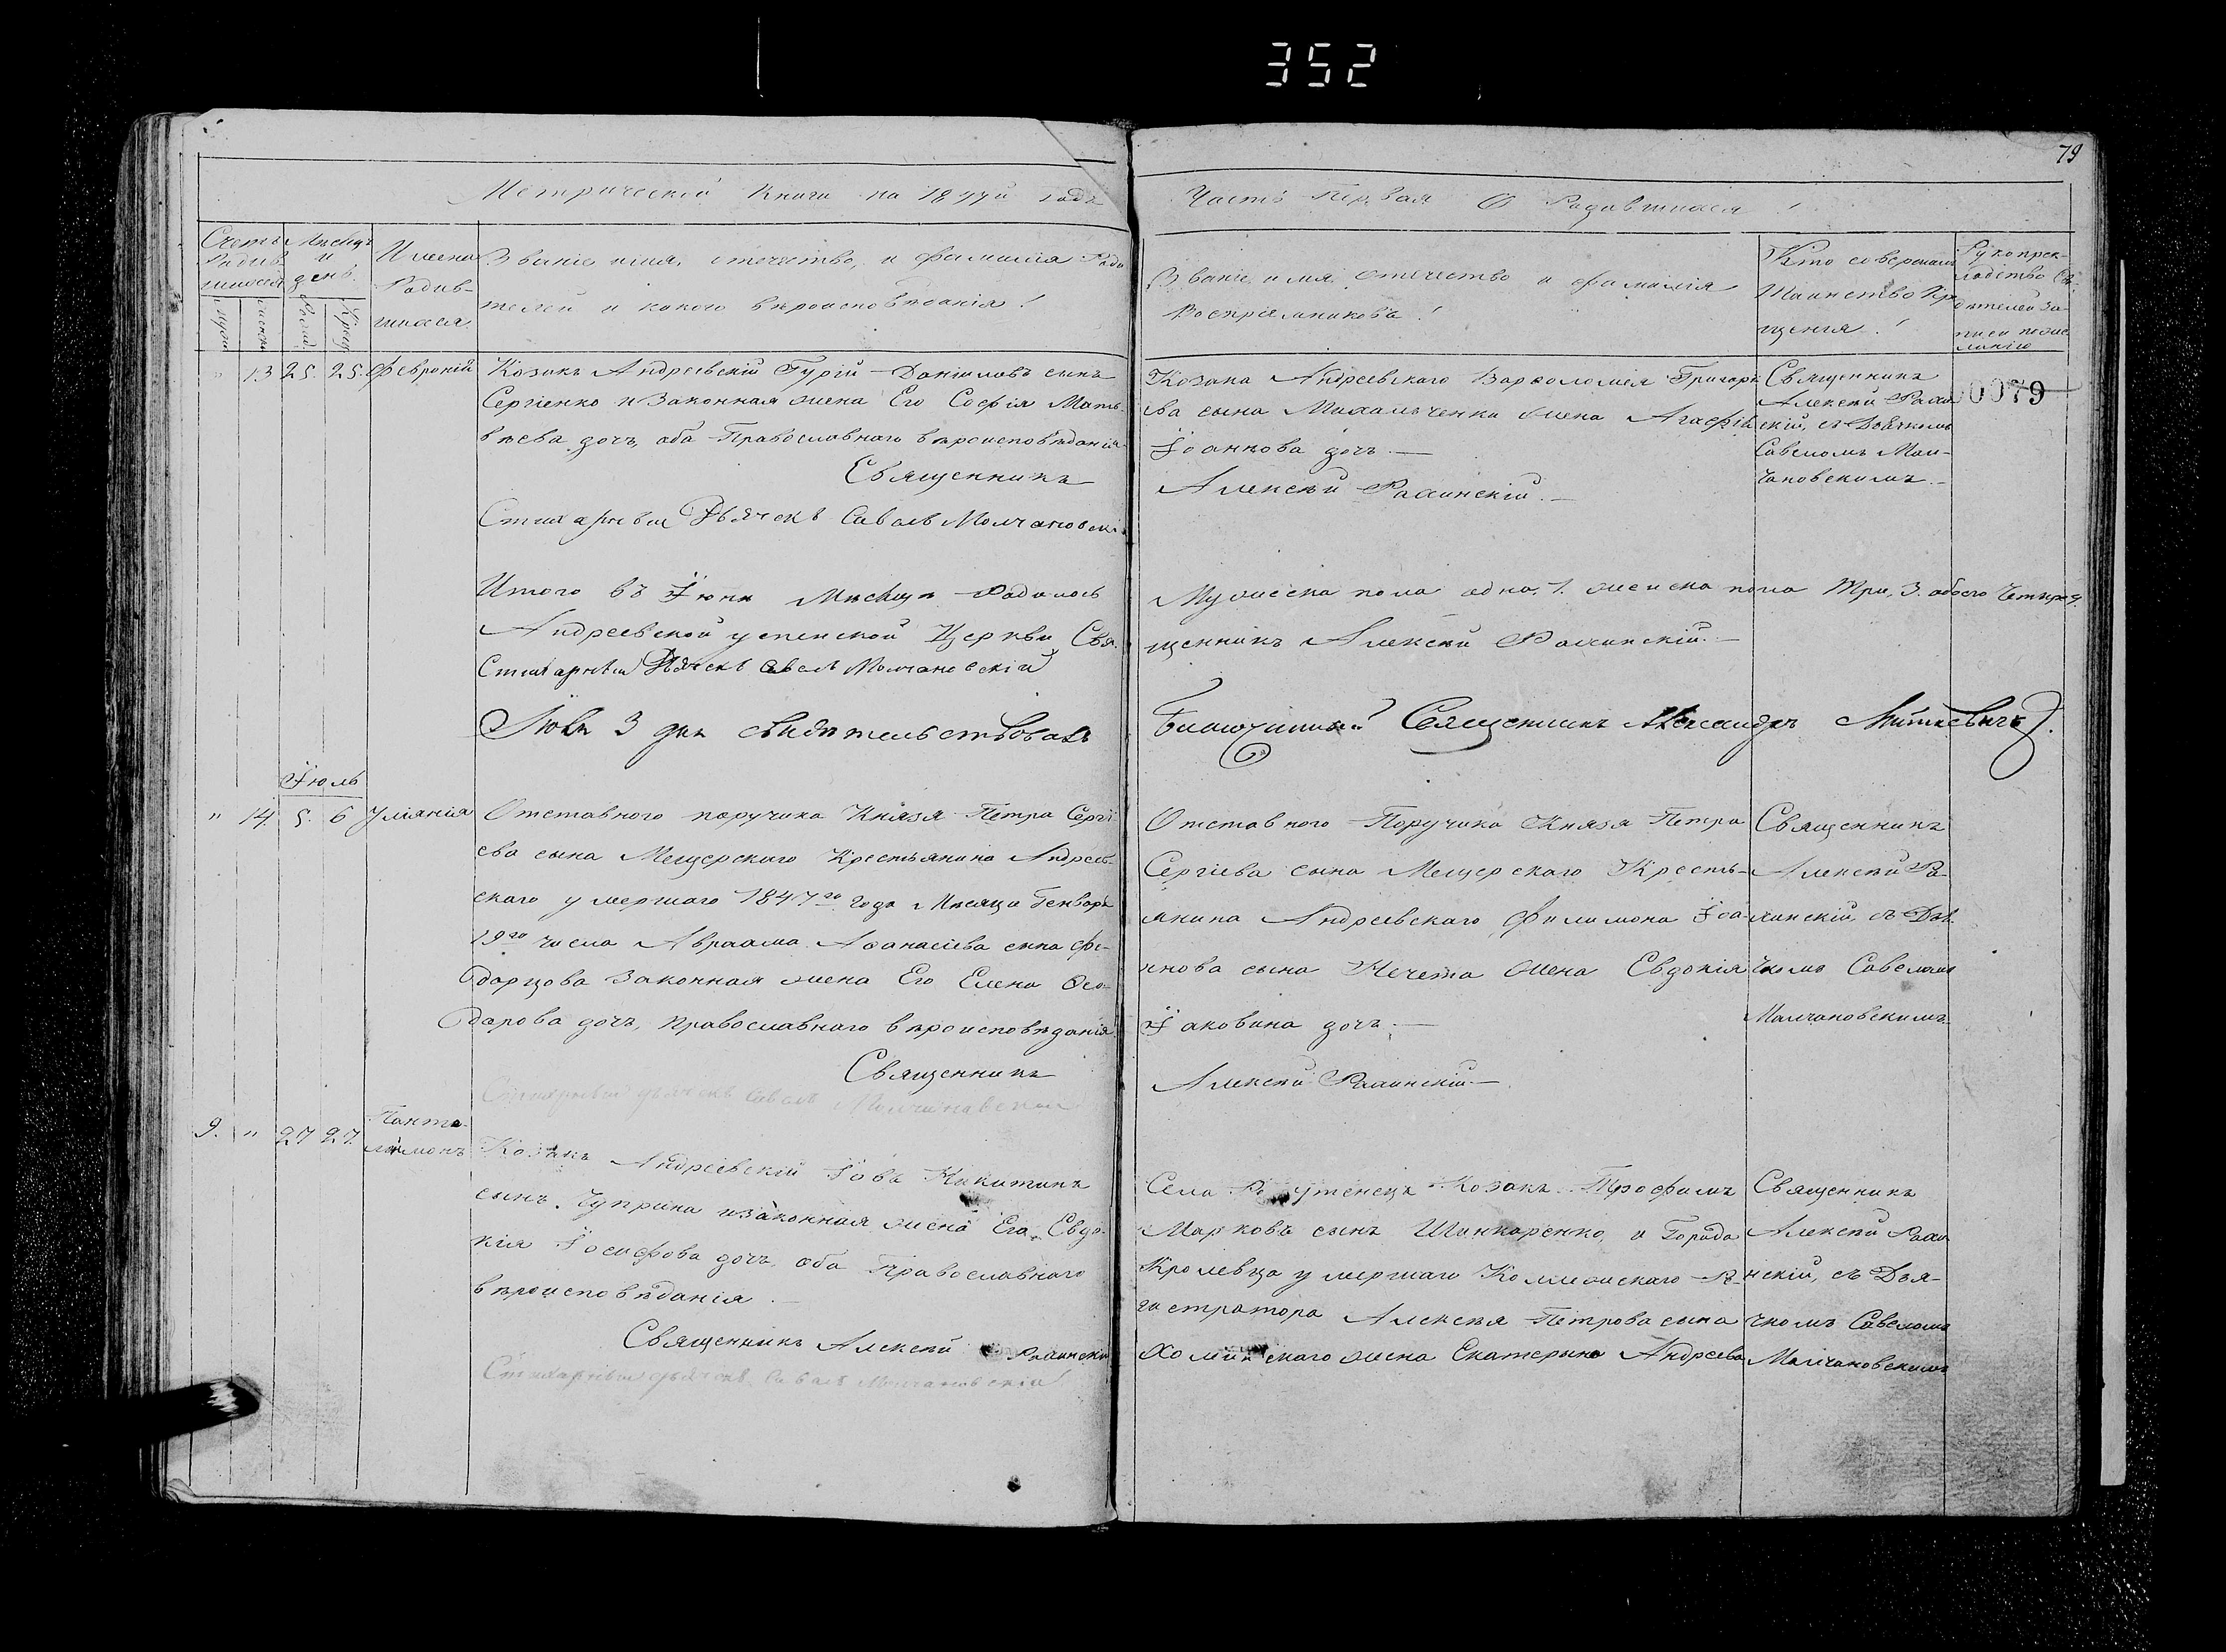 352
79
Метрической Книги на 1847й годъ
Часть Первая О Родившихся !
Счетъ Родив-шихся
Мѣсяцъ и день.
Имена Родив-шихся.
Званіе имя, отечество, и фамилія Роди
телей и какого вѣроисповѣданія !
Званіе, имя, отечество и фамилія
Воспріемниковъ !
Кто совершалъ
Таинство Кре
щенія. !
Рукоприк-
ладство Сви-
дѣтелей за-
писи
" 13 25. 25. Февронія
Козакъ Андреевскій Гурій Даніиловъ сынъ
Сергіенко и Законная жена Его Софія Мат-
вѣева дочь, оба Православнаго вѣроисповѣданія
Священникъ
Стихарный Дьячекъ Савелъ Молчановскій
Козака Андреевскаго Варфоломія Григорі
ева сына Михальченка жена Агафія
Іоаннова дочь.—
Алексѣй Рахинскій.—
Священникъ
Алексѣй Рахи
скій, съ Дьячкомъ
Савеломъ Мол-
чановскимъ.—
00079
Итого въ Іюнѣ Мѣсяцѣ Родилось
Андреевской успенской Церкви, Свя-
Стихарный Дьячекъ Савелъ Молчановскій
Мужеска пола одна, 1. женска пола Три, 3. обоего Четыре 4.
щенникъ Алексѣй Рахинскій.—
Іюля 3 дня свидѣтельствовалъ
Благочинный Священникъ Александръ Миткевичъ.
Іюль
" 14. 5. 6 Уліанія
Отставного поручика Князя Петра Сергі
ева сына Мещерскаго Крестьянина Андреев-
скаго умершаго 1847го года Мѣсяца Генваря
19го числа Авраама Афанасіева сына Фе-
дорцова Законная жена Его Елена Фео-
дорова дочь, православнаго вѣроисповѣданія
Священникъ
Стихарный дьячекъ Савелъ Молчановскій
Отставного Поручика Князя Петра
Сергіева сына Мещерскаго Кресть-
янина Андреевскаго Филимона Іоа-
ннова сына Нечета жена Евдокія
Іаковина дочь.—
Алексѣй Рахинскій.—
Священникъ
Алексѣй Ра-
хинскій, съ Дья
чкомъ Савеломъ
Малчановскимъ.
9. " 27 27. Панте-
лимонъ
Козакъ Андреевскій Іовъ Никитинъ
сынъ. Чуприна и законная жена Его, Евдо-
кія Іосифова дочь, оба Православнаго
вѣроисповѣданія.—
Священникъ Алексѣй Рахинскій
Стихарный дьячекъ Савелъ Молчановскій
Села Козакъ Трофимъ
Марковъ сынъ Шинкаренко, и Города
Кролевца умершаго Коллежскаго Ре-
гистратора Алексѣя Петрова сына
жена Екатерина Андреева
Священникъ
Алексѣй Рахи
нскій, съ Дья-
чкомъ Савеломъ
Малчановскимъ